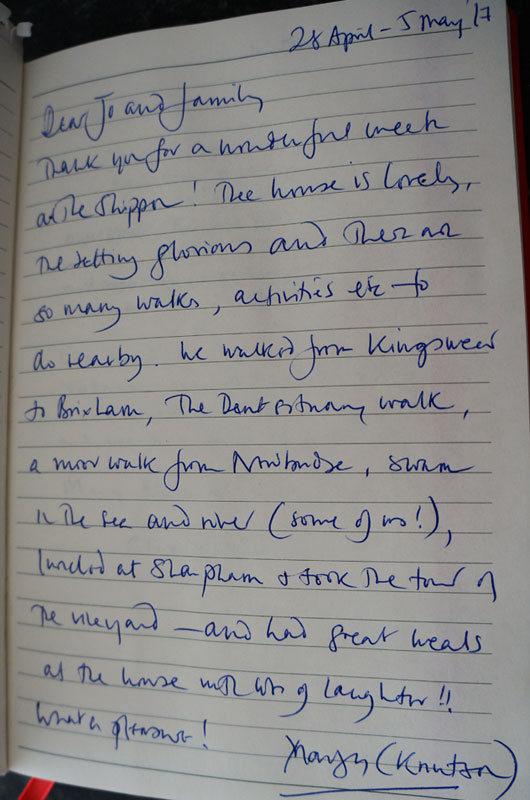 28 April - 5 May '17
Dear Jo and family
Thank you for a wonderful week
at The Shippon! The house is lovely,
the setting glorious and there are
so many walks, activities etc to
do nearby. We walked from Kingswear
to Brixham, The Dart estuary walk,
a moor walk from Newbridge, swam
in the sea and river (some of us!),
lunched at Sharpham & took the tour of
the vineyard — and had great meals
at the house with lots of laughter!!
What a pleasure!
(Knutson)